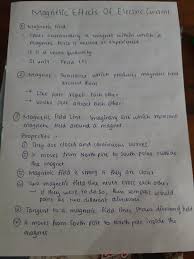 Magnetic Effects Of Electric Current
① Magnetic Field
Space surrounding a magnet within which a
magnetic force is exerted or experienced
It is a vector quantity
SI unit - Tesla (T)
② Magnet - Substance which produces magnetic field
around them
→ Like poles repel each other
→ Unlike poles attract each other
③ Magnetic Field Line - Imaginary line which represent
magnetic field around a magnet
Properties -
① They are closed and continuous curves
② It moves from North pole to South pole outside
the magnet
③ Magnetic field is strong if they are closer
④ Two magnetic field lines never cross each other
→ if they were to do so, then compass would
point in two different directions
⑤ Tangent to a magnetic field lines shows direction of field
⑥ It moves from South pole to North pole inside the
magnet